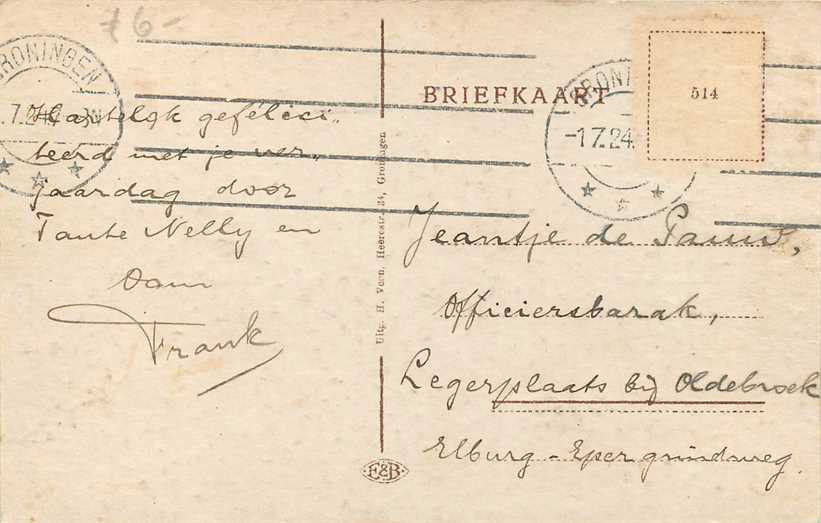 76-
GRONINGEN
.7.24. 3N
Hartelijk gefelici..
teerd met je ver..
jaardag door
Tante Nelly en
Oom
Frank
Uitg. H. Veen, Heerestr. 34, Groningen
E&B
BRIEFKAART
GRONIN
-1 7.24.
514
Jeantje de Pauw,
Officiersbarak,
Legerplaats bij Oldebroek
Elburg - Eper grindweg.